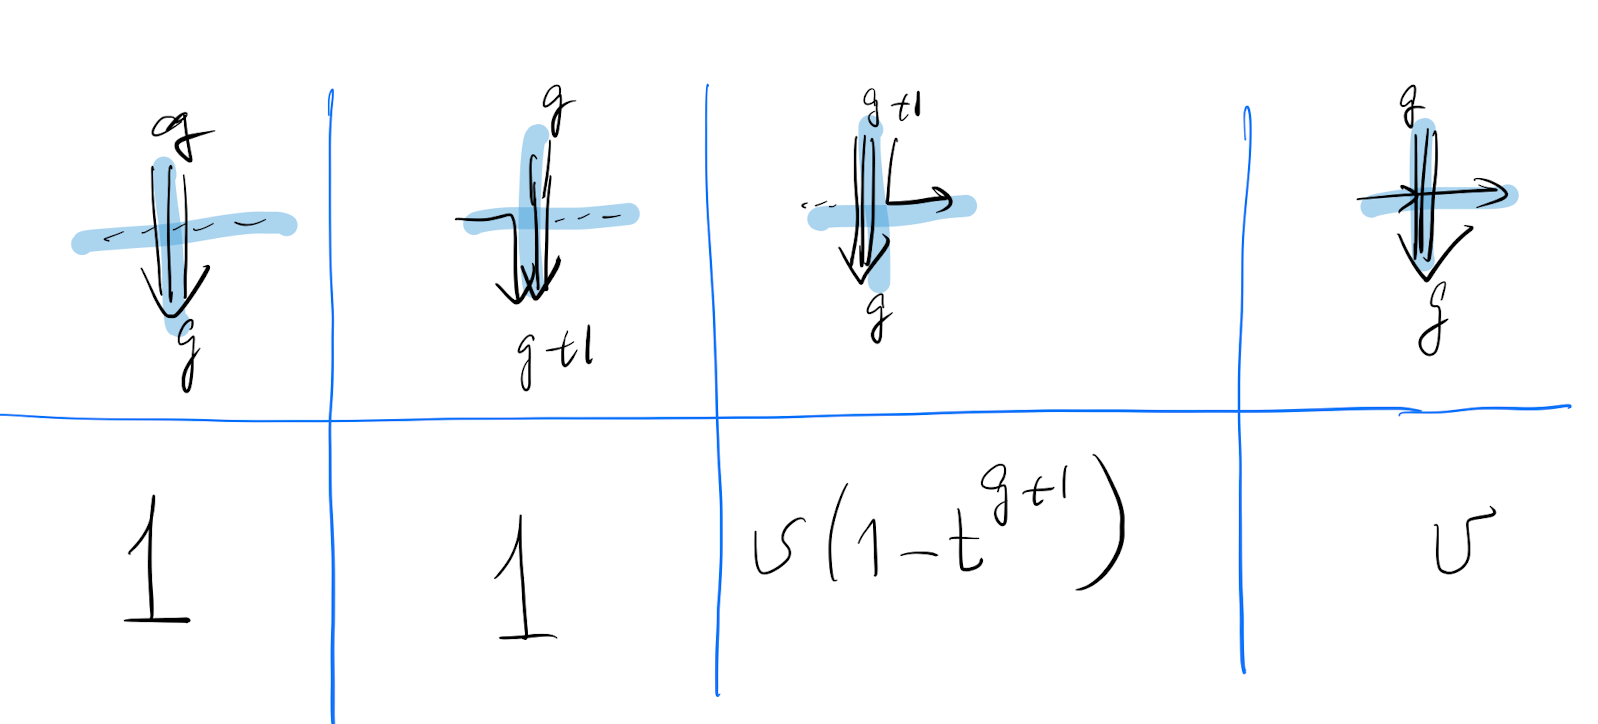 g g g+1 g
g g+1 g g
1 1 v(1-t^{g+1}) v